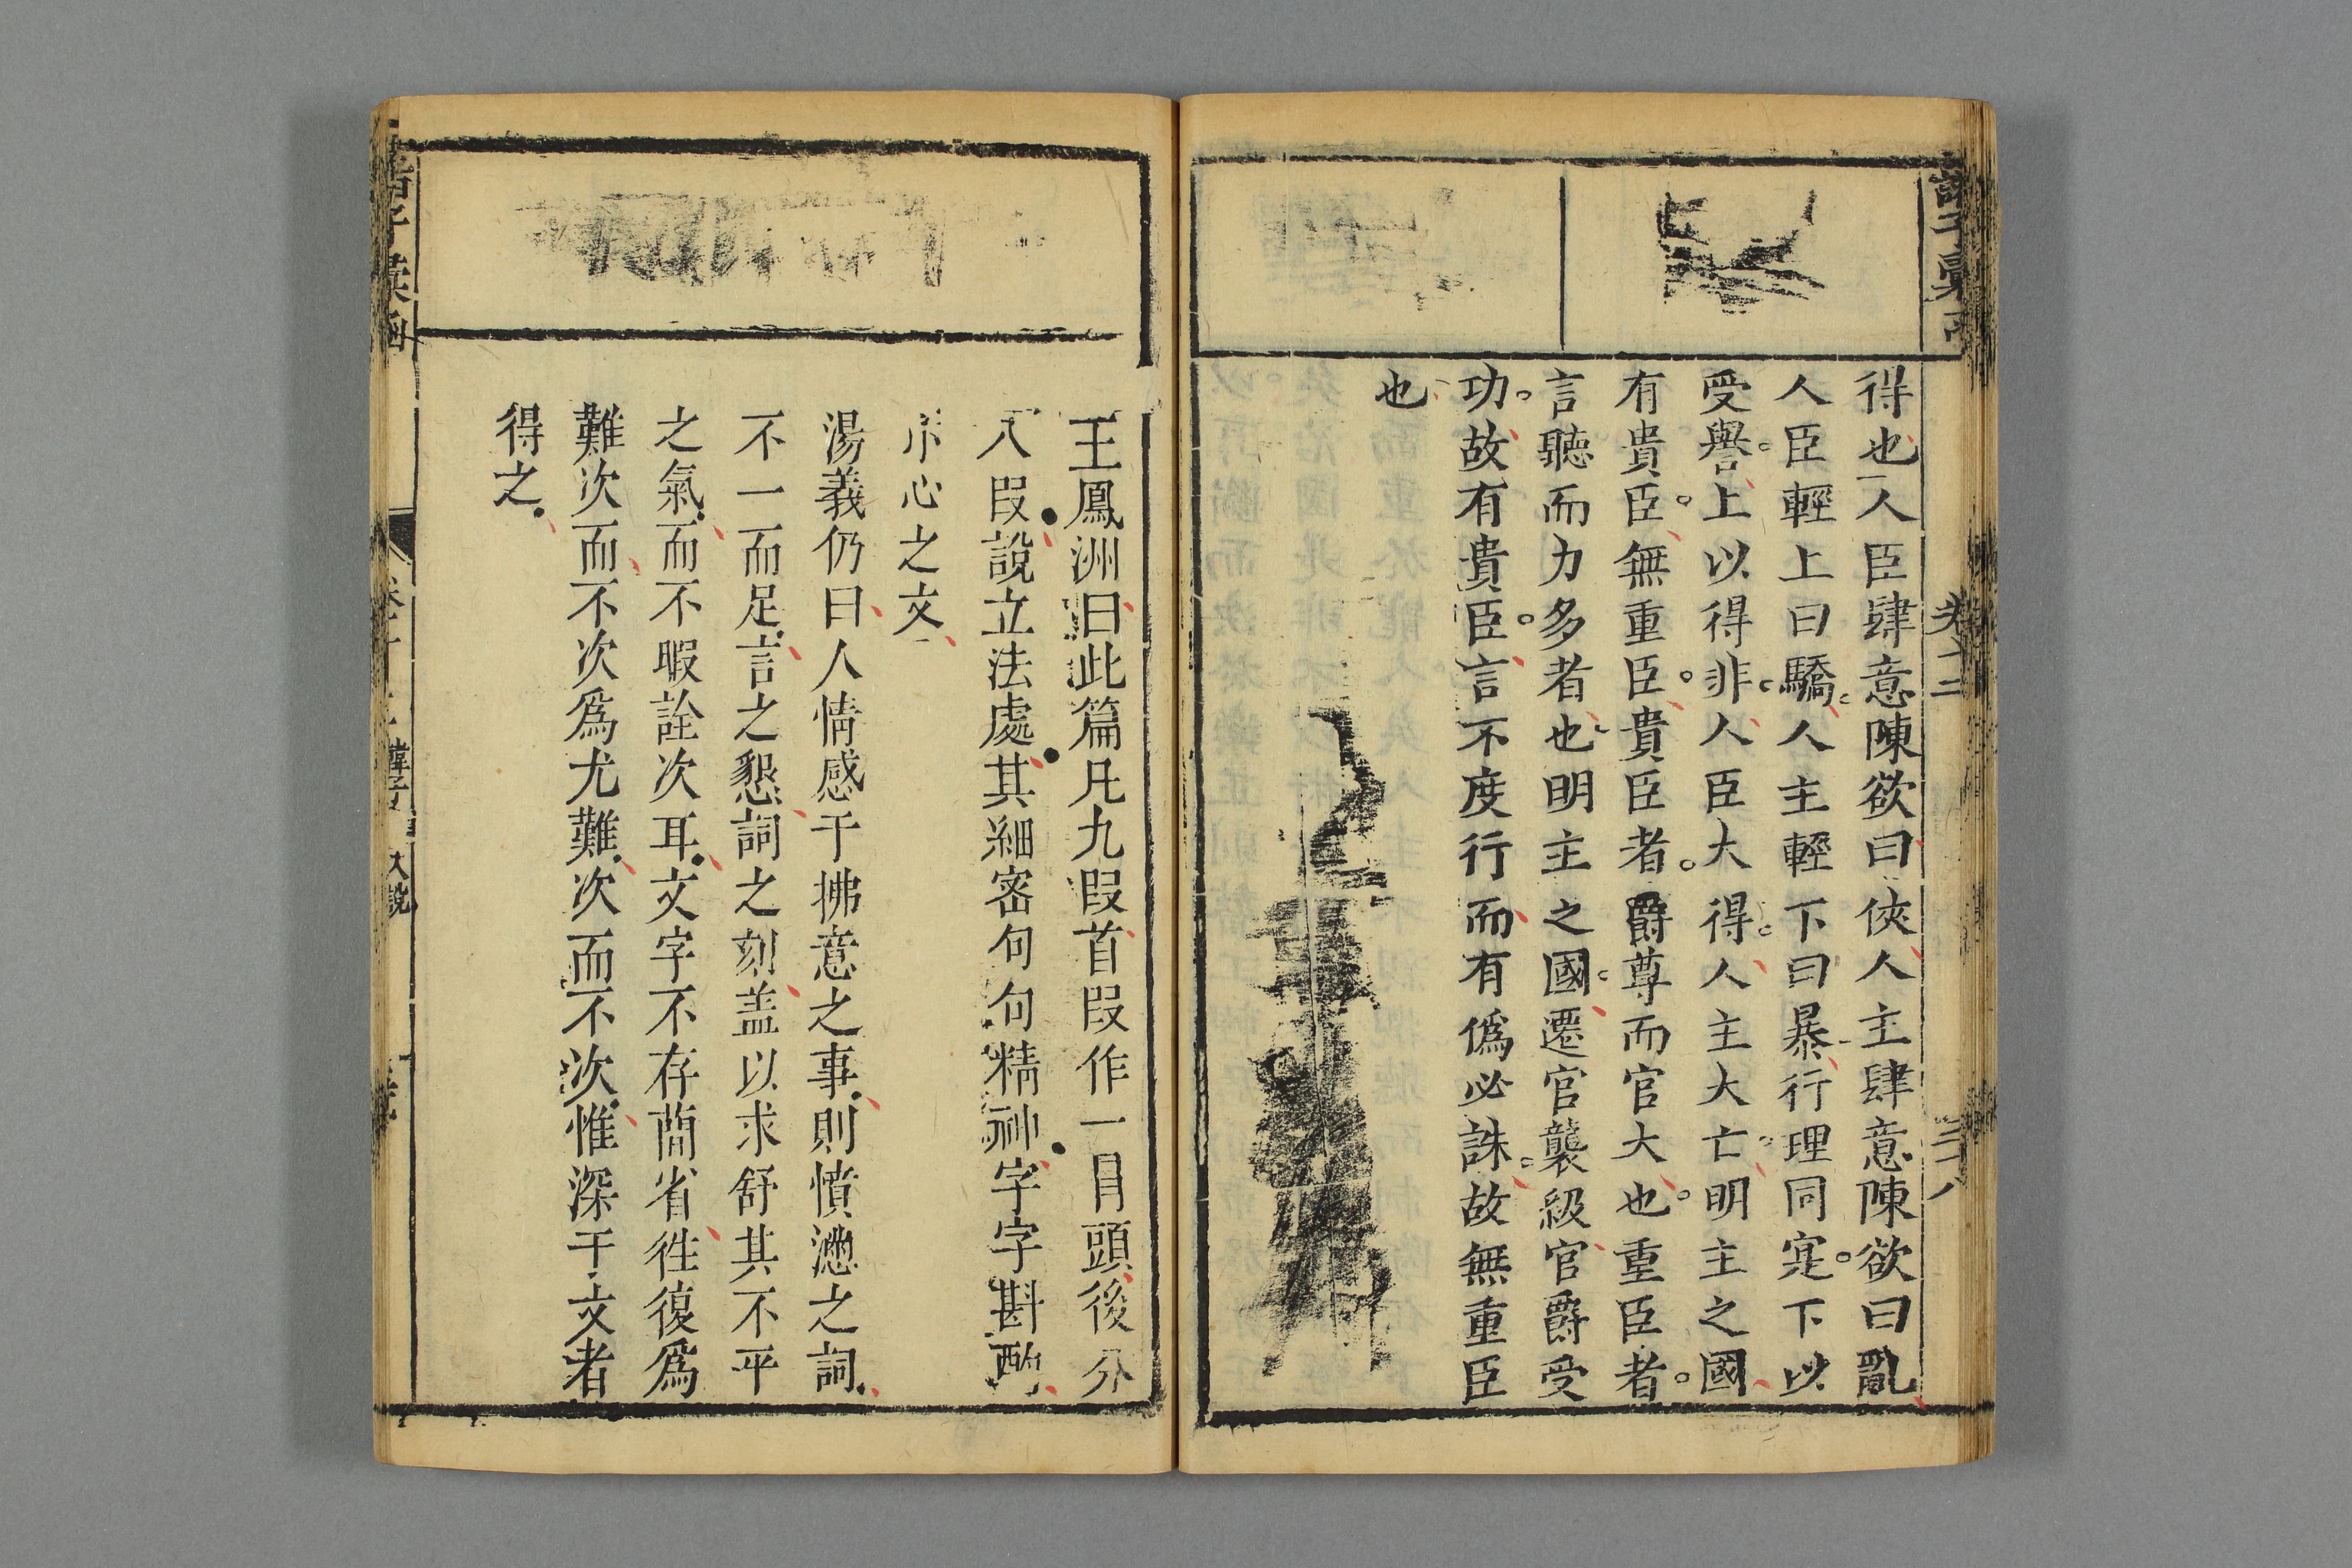 得也人臣肆意陳欲曰俠人主肆意陳欲曰亂
人臣輕上曰驕人主輕下曰暴行理同寔下以
受譽上以得非人臣大得人主大亡明主之國
有貴臣無重臣貴臣者爵尊而官大也重臣者
言聽而力多者也明主之國遷官襲級官爵受
功故有貴臣言不度行而有僞必誅故無重臣
也
王鳳洲曰此篇凡九叚首叚作一冒頭後分
八叚說立法處其細密句句精神字字斟酌
心之文
湯義仍曰人情感于拂意之事則憤懣之詞
不一而足言之懇詞之刻盖以求舒其不平
之氣而不暇詮次耳文字不存蕳省徃復爲
難次而不次爲尤難次而不次惟深于文者
得之